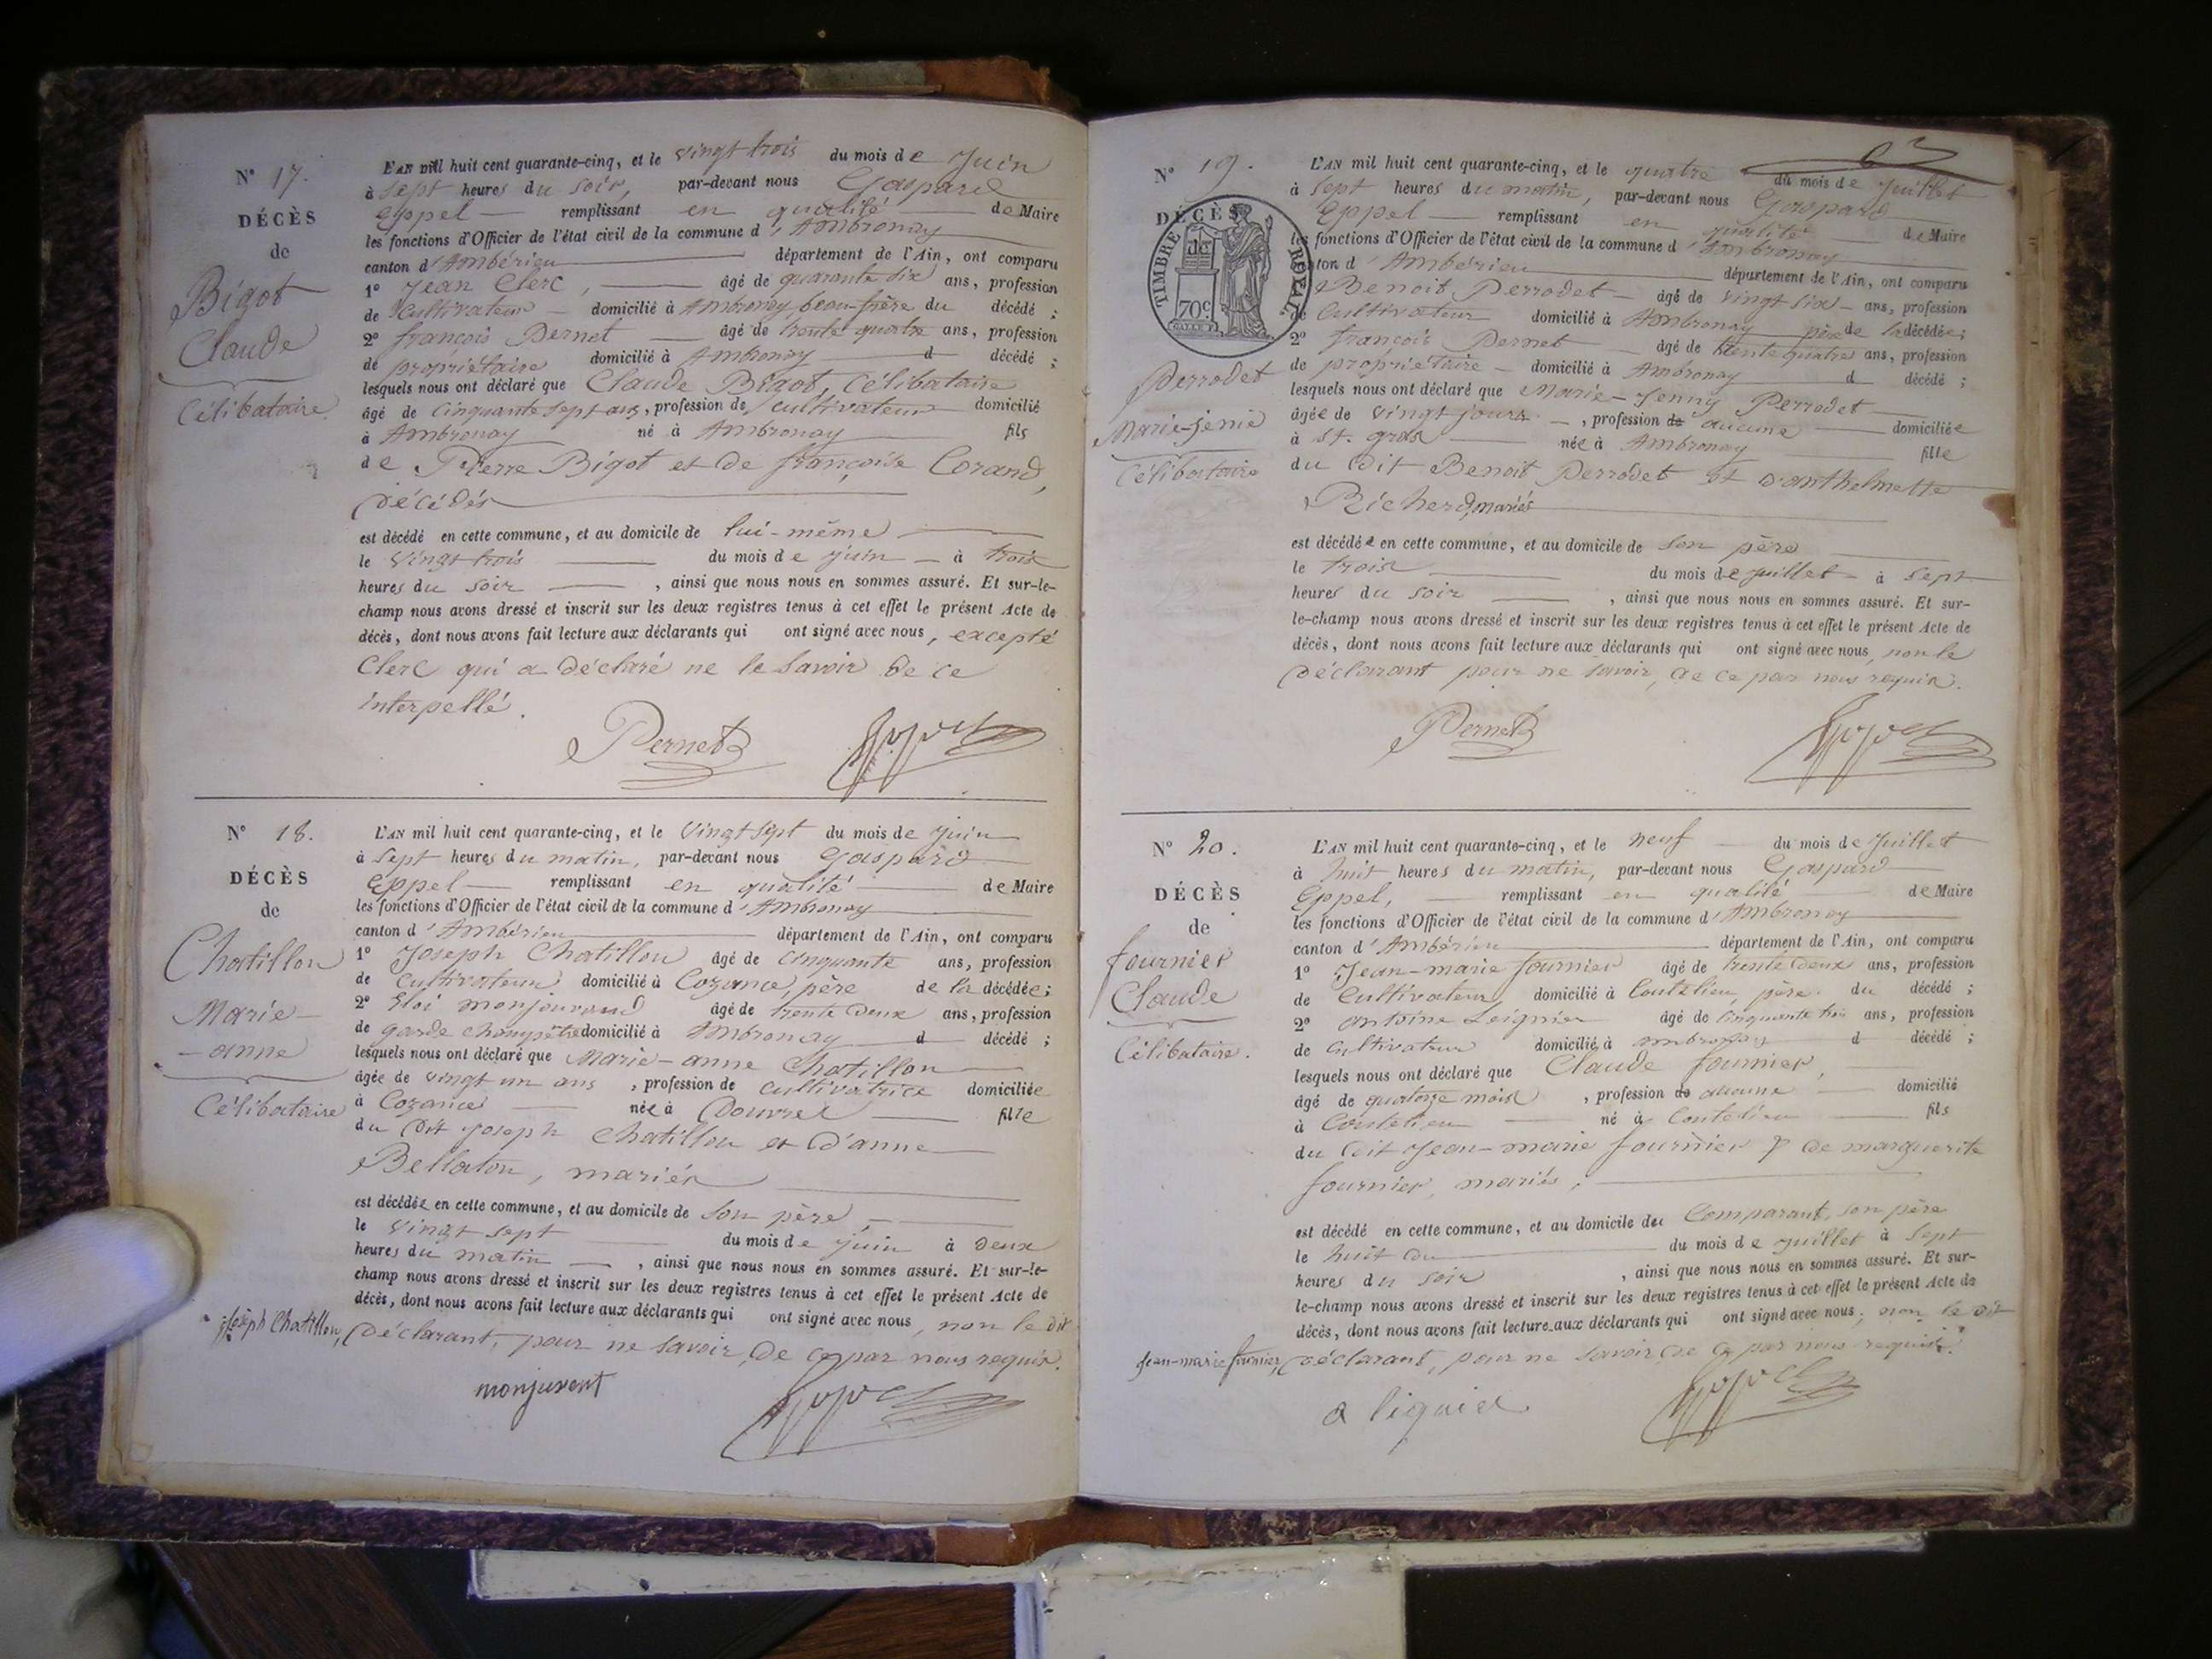 N° 17.
DÉCÈS
de
Bigot
Claude
Célibataire
L'AN mil huit cent quarante-cinq, et le vingt trois du mois de Juin
à sept heures du soir, par-devant nous Gaspard
Eppel remplissant en qualité de Maire
les fonctions d'Officier de l'état civil de la commune d'Ambronay
canton d'Ambérieu département de l'Ain, ont comparu
1° Jean Clerc, âgé de quarante six ans, profession
de Cultivateur domicilié à Ambronay, beau-frère du décédé ;
2° françois Pernet âgé de trente quatre ans, profession
de propriétaire domicilié à Ambronay d décédé ;
lesquels nous ont déclaré que Claude Bigot, Célibataire
âgé de Cinquante sept ans, profession de cultivateur domicilié
à Ambronay né à Ambronay fils
de Pierre Bigot et de françoise Corand,
décédés
est décédé en cette commune, et au domicile de lui-même
le vingt trois du mois de juin à trois
heures du soir, ainsi que nous nous en sommes assuré. Et sur-le-
champ nous avons dressé et inscrit sur les deux registres tenus à cet effet le présent Acte de
décès, dont nous avons fait lecture aux déclarants qui ont signé avec nous, excepté
Clerc qui a déclaré ne le savoir de ce
interpellé.
Pernet Eppel
N° 18.
DÉCÈS
de
Chatillon
Marie-
-anne
Célibataire
L'AN mil huit cent quarante-cinq, et le vingt sept du mois de juin
à sept heures du matin, par-devant nous Gaspard
Eppel remplissant en qualité de Maire
les fonctions d'Officier de l'état civil de la commune d'Ambronay
canton d'Ambérieu département de l'Ain, ont comparu
1° Joseph Chatillon âgé de cinquante ans, profession
de Cultivateur domicilié à Cozance, père de la décédée ;
2° Eloi monjouvand âgé de trente deux ans, profession
de garde champêtre domicilié à Ambronay d décédé ;
lesquels nous ont déclaré que Marie-anne Chatillon
âgée de vingt un ans, profession de cultivatrice domiciliée
à Cozance née à Douvres fille
du dit Joseph Chatillon et d'anne
Bellaton, mariés
est décédée en cette commune, et au domicile de son père,
le vingt sept du mois de juin à deux
heures du matin, ainsi que nous nous en sommes assuré. Et sur-le-
champ nous avons dressé et inscrit sur les deux registres tenus à cet effet le présent Acte de
décès, dont nous avons fait lecture aux déclarants qui ont signé avec nous, non le dit
Joseph Chatillon, déclarant, pour ne savoir, de ce par nous requis.
monjuvent Eppel
N° 19.
DÉCÈS
de
TIMBRE ROYAL
70c
Perrodet
Marie-jénie
Célibataire
L'AN mil huit cent quarante-cinq, et le quatre du mois de Juillet
à sept heures du matin, par-devant nous Gaspard
Eppel remplissant en qualité de Maire
les fonctions d'Officier de l'état civil de la commune d'Ambronay
canton d'Ambérieu département de l'Ain, ont comparu
Benoit Perrodet âgé de vingt six ans, profession
de Cultivateur domicilié à Ambronay père de la décédée ;
2° françois Pernet âgé de trente quatre ans, profession
de propriétaire domicilié à Ambronay d décédé ;
lesquels nous ont déclaré que Marie-Jenny Perrodet
âgée de vingt jours, profession de aucune domiciliée
à St. gras née à Ambronay fille
du dit Benoit Perrodet et d'anthelmette
Richerd, mariés
est décédée en cette commune, et au domicile de son père
le trois du mois de juillet à sept
heures du soir, ainsi que nous nous en sommes assuré. Et sur-
le-champ nous avons dressé et inscrit sur les deux registres tenus à cet effet le présent Acte de
décès, dont nous avons fait lecture aux déclarants qui ont signé avec nous, non le
déclarant pour ne savoir, de ce par nous requis.
Pernet Eppel
N° 20.
DÉCÈS
de
fournier
Claude
Célibataire.
L'AN mil huit cent quarante-cinq, et le neuf du mois de Juillet
à huit heures du matin, par-devant nous Gaspard
Eppel, remplissant en qualité de Maire
les fonctions d'Officier de l'état civil de la commune d'Ambronay
canton d'Ambérieu département de l'Ain, ont comparu
1° Jean-marie fournier âgé de trente deux ans, profession
de Cultivateur, domicilié à Coutelieu, père du décédé ;
2° antoine Leignier âgé de cinquante trois ans, profession
de Cultivateur domicilié à ambronay d décédé ;
lesquels nous ont déclaré que Claude fournier,
âgé de quatorze mois, profession de aucune domicilié
à Coutelieu né à Coutelieu fils
du dit Jean-marie fournier & de marguerite
fournier, mariés,
est décédé en cette commune, et au domicile du Comparant, son père
le huit du du mois de juillet à sept
heures du soir, ainsi que nous nous en sommes assuré. Et sur-
le-champ nous avons dressé et inscrit sur les deux registres tenus à cet effet le présent Acte de
décès, dont nous avons fait lecture aux déclarants qui ont signé avec nous, non le dit
Jean-marie fournier, déclarant, pour ne savoir, de ce par nous requis.
a liguier Eppel